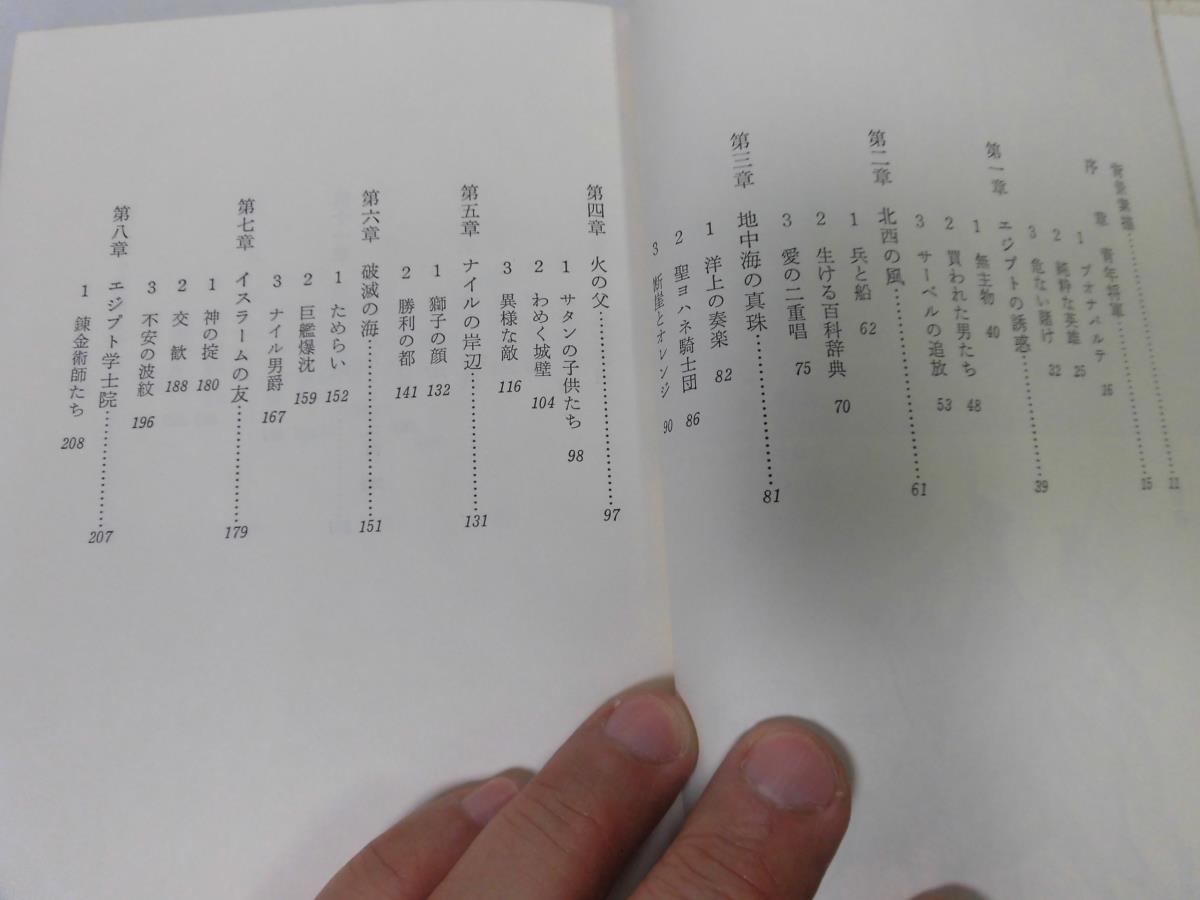 背景素描…………11
序章 青年将軍…………15
1 ブオナパルテ 16
2 純粋な英雄 25
3 危ない賭け 32
第一章 エジプトの誘惑…………39
1 無主物 40
2 買われた男たち 48
3 サーベルの追放 53
第二章 北西の風…………61
1 兵と船 62
2 生ける百科辞典 70
3 愛の二重唱 75
第三章 地中海の真珠…………81
1 洋上の奏楽 82
2 聖ヨハネ騎士団 86
3 断崖とオレンジ 90
第四章 火の父…………97
1 サタンの子供たち 98
2 わめく城壁 104
3 異様な敵 116
第五章 ナイルの岸辺…………131
1 獅子の顔 132
2 勝利の都 141
第六章 破滅の海…………151
1 ためらい 152
2 巨艦爆沈 159
3 ナイル男爵 167
第七章 イスラームの友…………179
1 神の掟 180
2 交歓 188
3 不安の波紋 196
第八章 エジプト学士院…………207
1 錬金術師たち 208